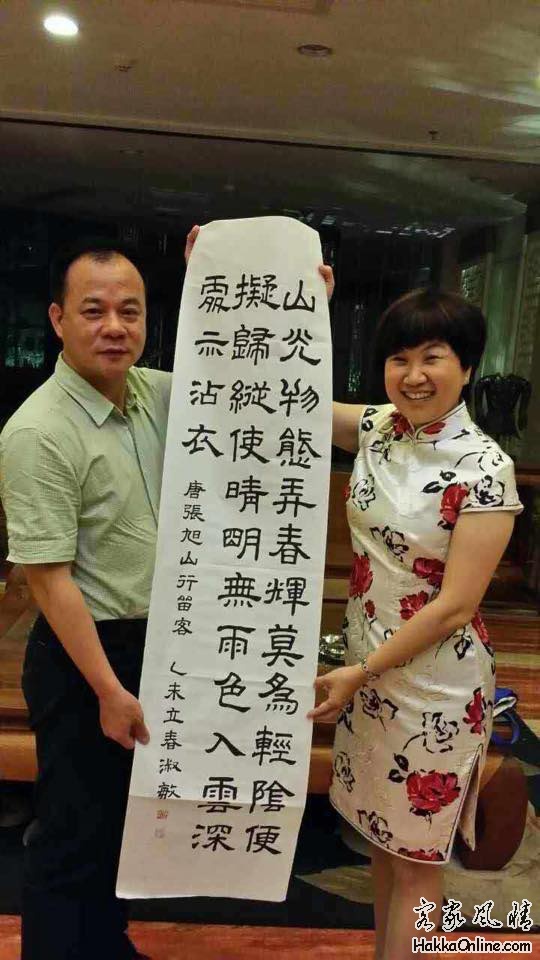 山光物態弄春輝莫為輕陰便
擬歸縱使晴明無雨色入雲深
處亦沾衣
唐張旭山行留客
乙未立春淑敏
客家风情
HakkaOnline.com